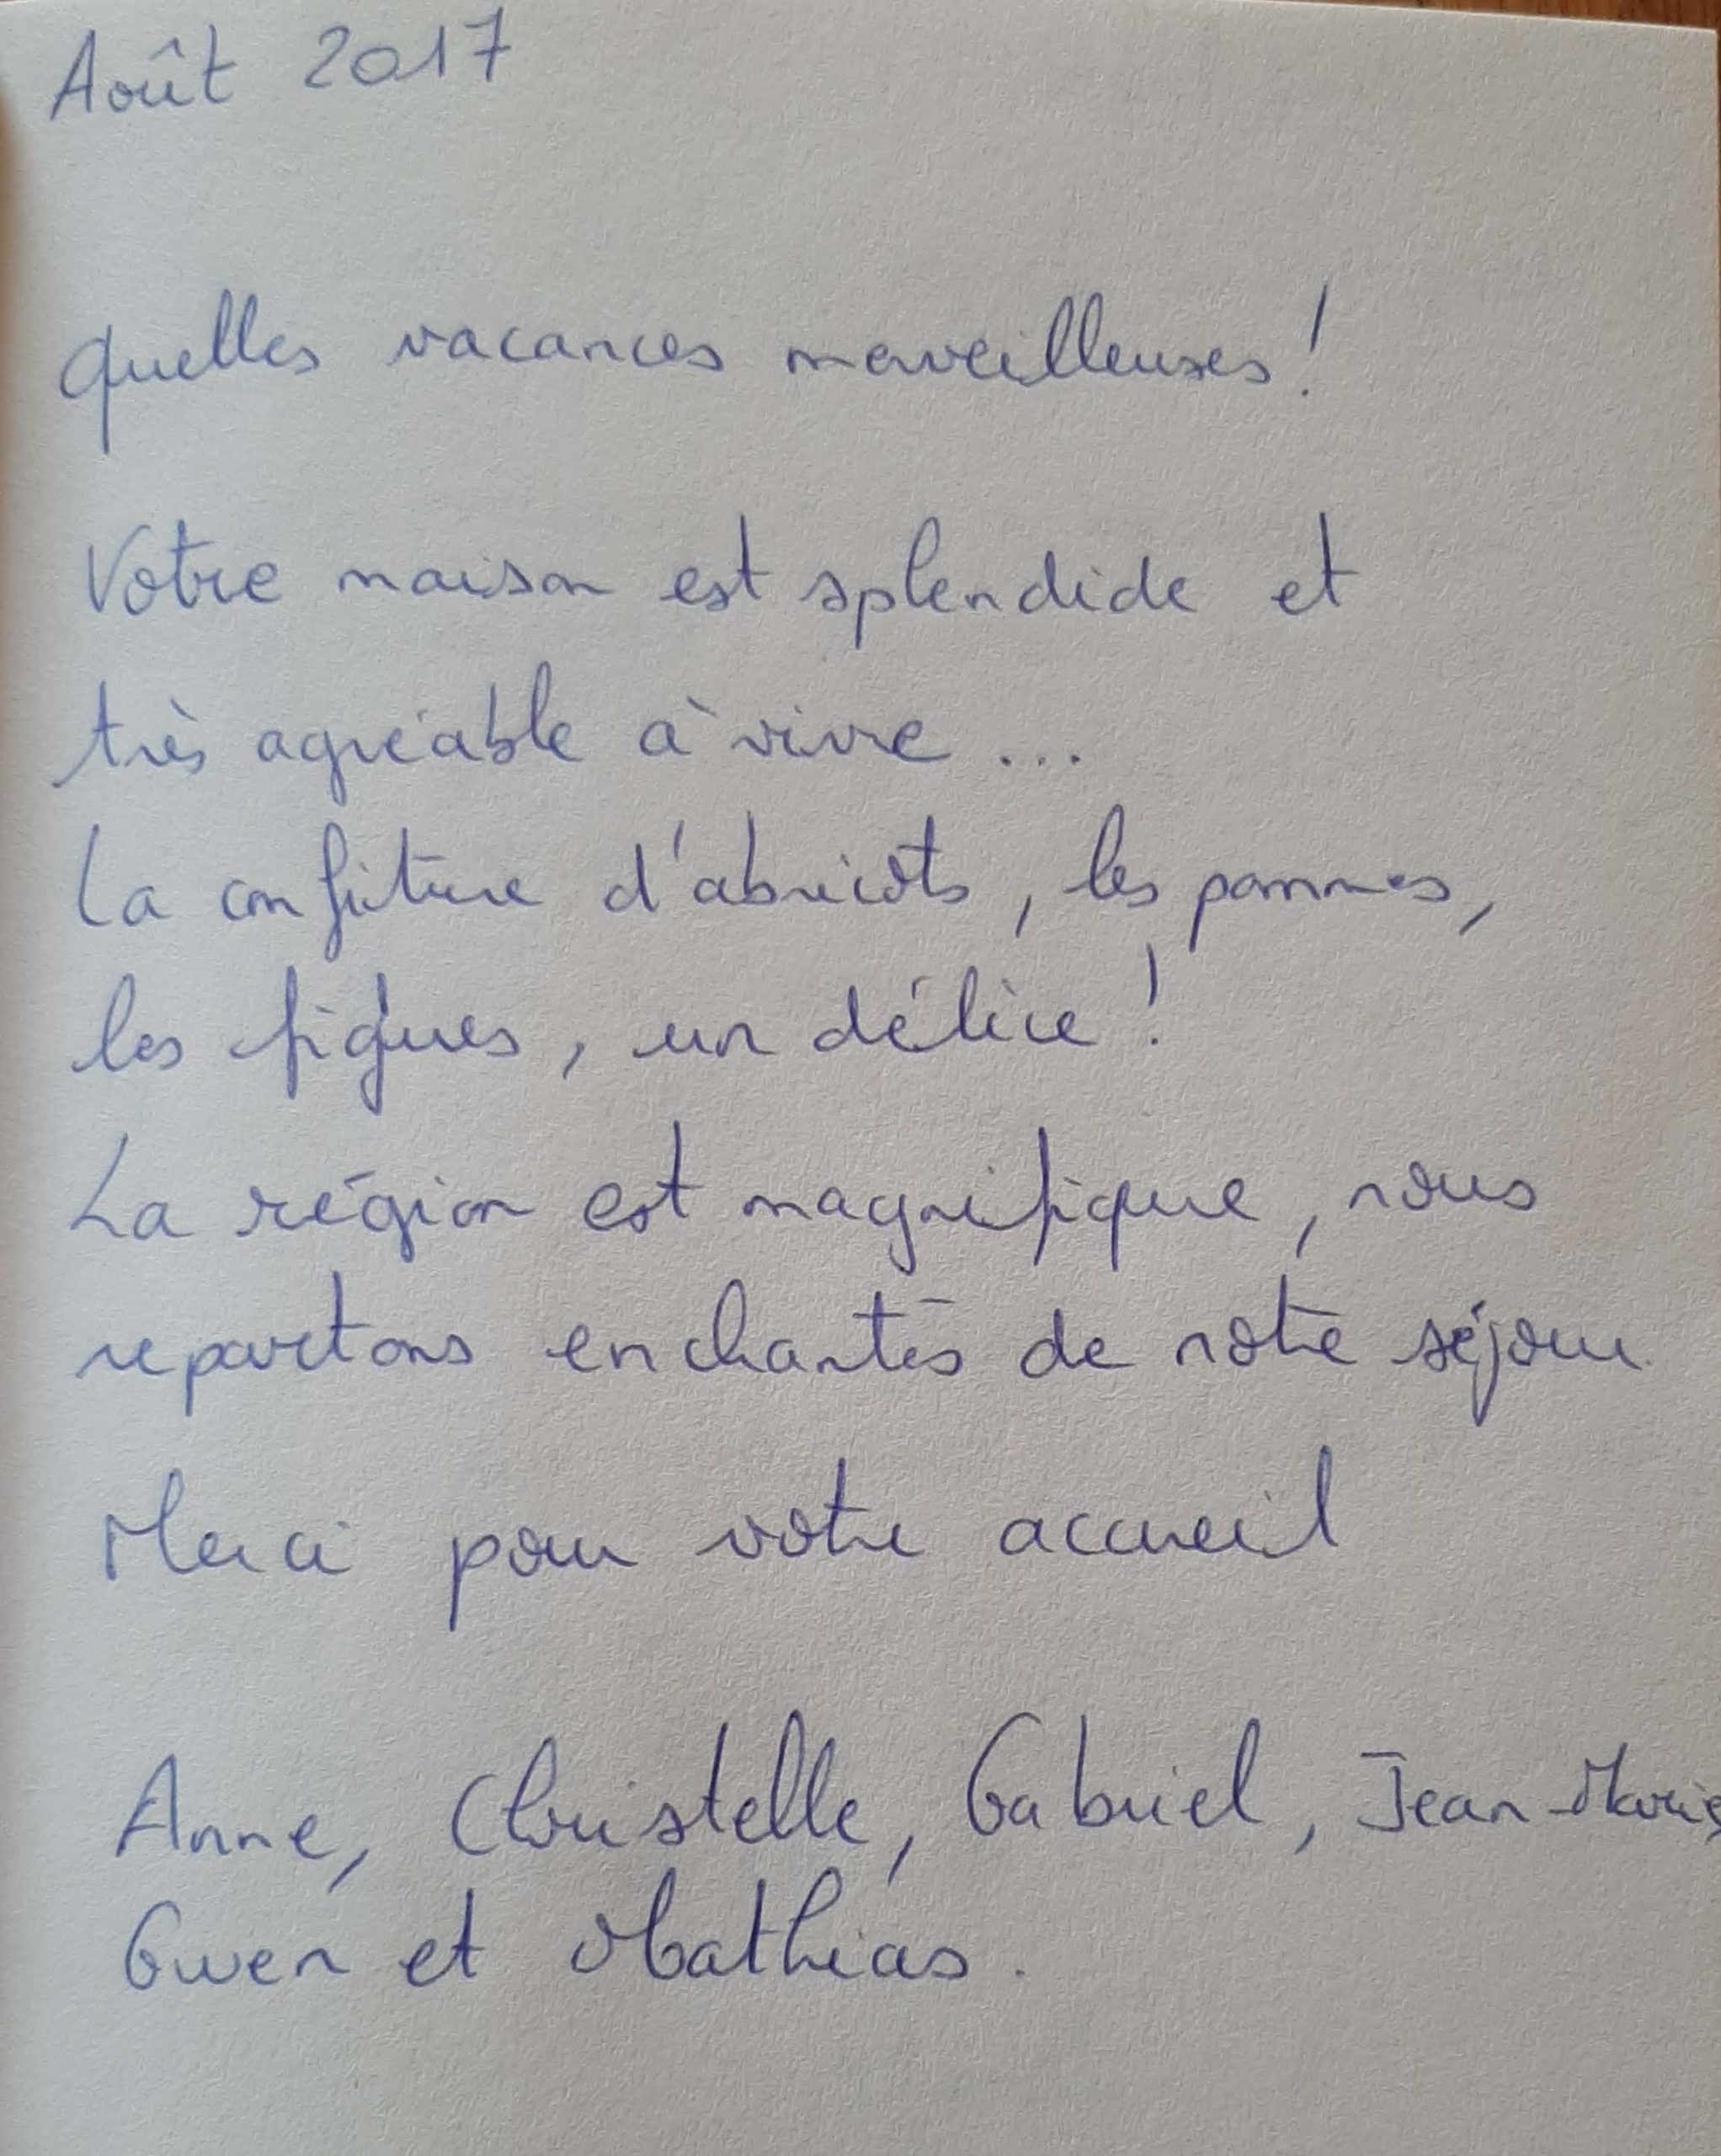 Août 2017
Quelles vacances merveilleuses !
Votre maison est splendide et
très agréable à vivre ...
La confiture d'abricots, les pommes,
les figues, un délice !
La région est magnifique, nous
repartons enchantés de notre séjour
Merci pour votre accueil
Anne, Christelle, Gabriel, Jean-Marie
Gwen et Mathias.